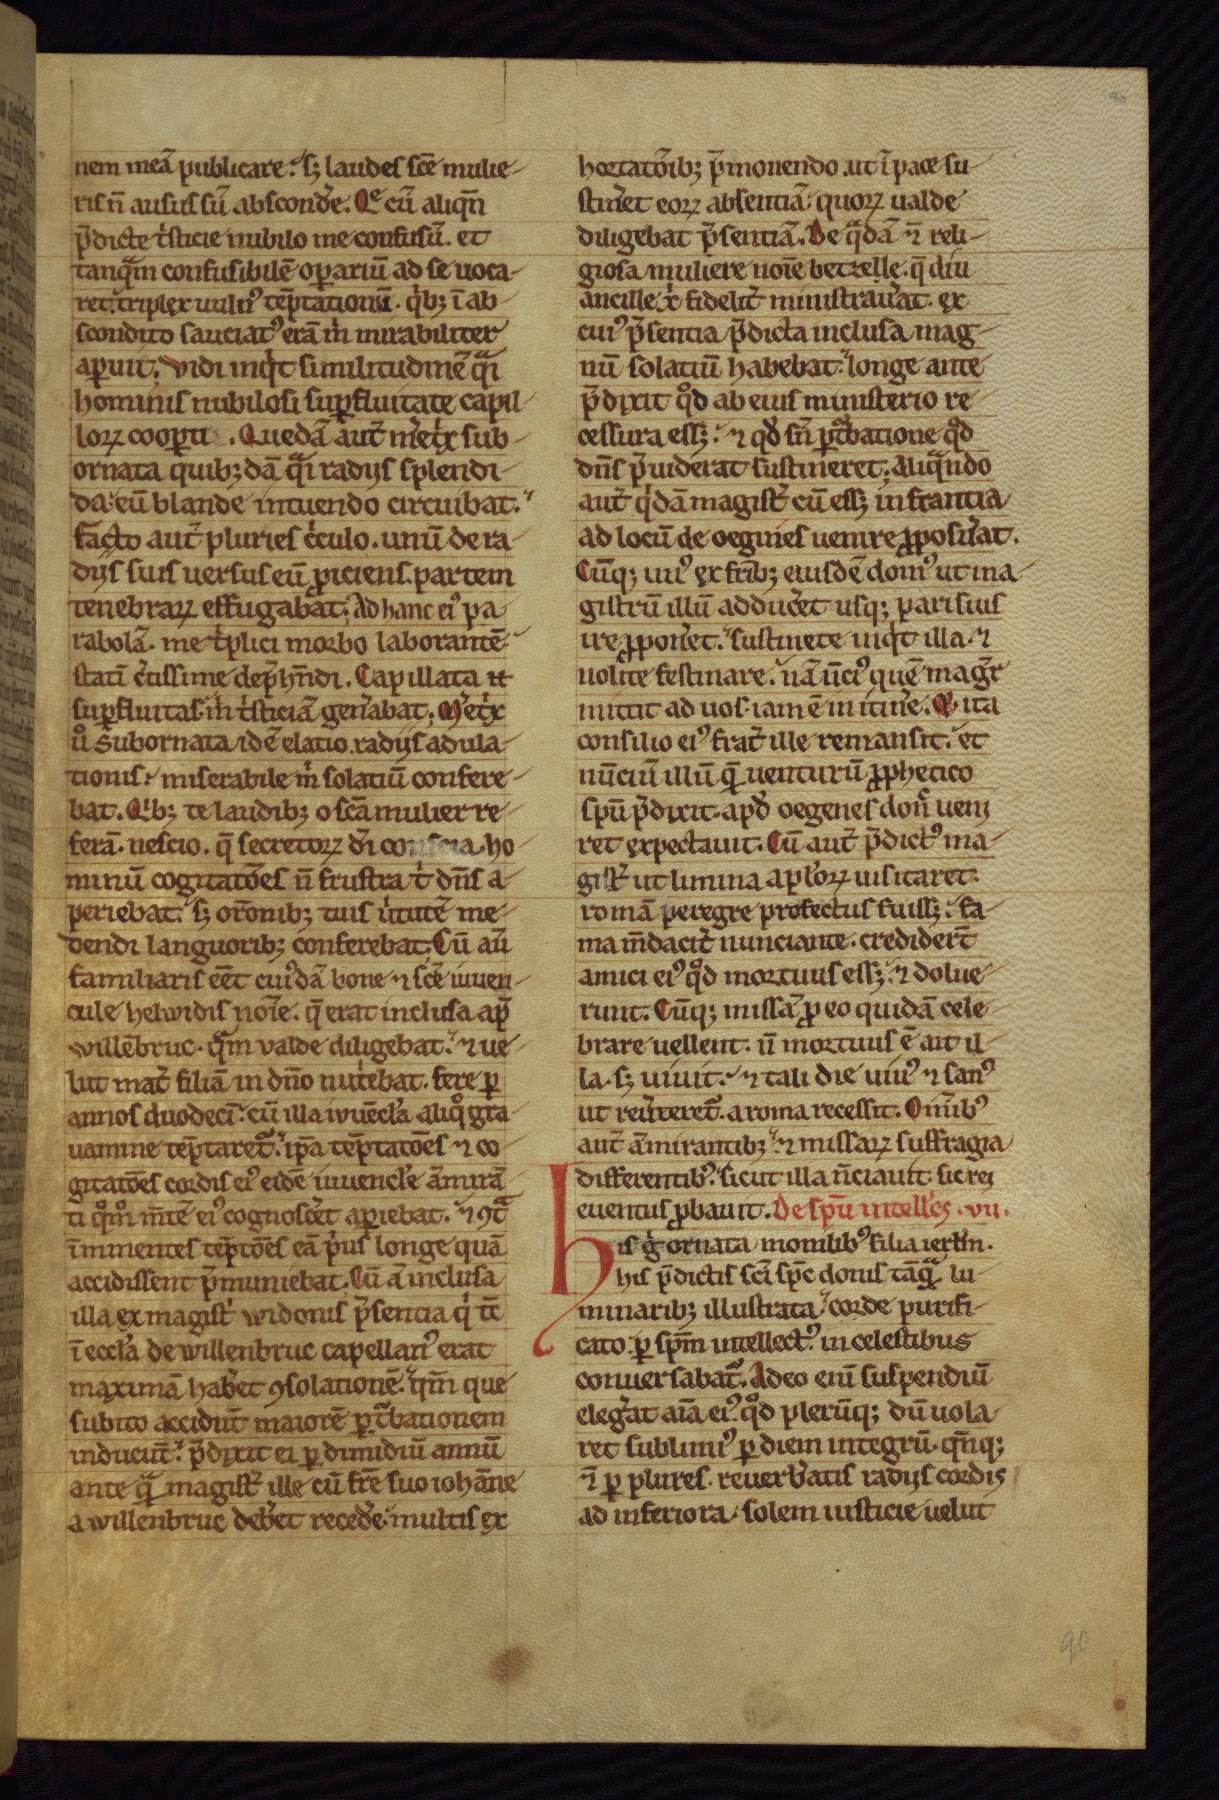 nem meā publicare. sꝫ laudes sc̄e mulie-
ris n̄ ausus sū absconde᷒. Qͤ cū aliqn̄
p̄dicte tⁱsticie nubilo me confusū. et
tanqᵃm confusibilē oꝑariū ad se uoca-
ret. triplex uuln᷒ tēptationū. qⁱbꝫ ī ab-
scondito sauciat᷒ erā m̄ mirabiliter
aꝑuit. Vidi inqⁱt similitudinē qᵃi
hominis nubilosi suꝑfluitate capil-
loꝝ cooꝑti. Quedā aut᷒ me᷒tⁱx sub-
ornata quibꝫdā qᵃi radijs splendi-
da. eū blande intuendo circuibat.
facto aut᷒ pluries cⁱculo. unū de ra-
dijs suis uersus eū ꝓiciens. partem
tenebraꝝ effugabat. Ad hanc ei᷒ pa-
rabolā. me tⁱplici morbo laborantē
statī c᷒tissime dep̄hn̄di. Capillata et
suꝑfluitas m̄ tⁱsticiā gen᷒abat. Me᷒tⁱx
uͦ subornata idē elatio. radijs adula-
tionis. miserabile m̄ solatiū confere-
bat. Qⁱbꝫ te laudibꝫ o sc̄a mulier re-
ferā. nescio. q̄ secretoꝝ dī conscia. ho-
minū cogitatōes n̄ frustra tⁱ dn̄s a-
periebat. sꝫ orōnibꝫ tuis uⁱtutē me-
dendi languoribꝫ conferebat. Cū aū
familiaris eēt cui᷒dā bone ⁊ sc̄e iuuen-
cule helwidis noīe. q̄ erat inclusa ap̄
willēbruc. qᵃm valde diligebat. ⁊ ue-
lut mat᷒ filiā in dn̄o nutⁱebat. fere ꝑ
annos duodecī. cū illa iuuēcl̓a aliqͦ gra-
uamine tēptaretᷣ. ip̄a tēptatōes ⁊ co-
gitatōes cordis ei᷒ eidē iuuencl̓e āmirā-
ti qͦm̊ m̄tē ei᷒ cognosc᷒et aꝑiebat. ⁊ ꝯtᵃ
īminentes tēptōes eā pⁱus longe quā
accidissent p̄muniebat. Cū ā inclusa
illa ex magistⁱ widonis p̄sentia qⁱ tc̄
ī eccl̓a de willenbruc capellan᷒ erat
maximā hab᷒et ꝯsolationē. qm̄ que
subito accidūt maiorē ꝑtᷣbationem
inducūt. p̄dixit ei ꝑ dimidiū annū
ante qᵃ magist᷒ ille cū fr̄e suo iohāne
a willenbruc deb᷒et recede᷒. multis ex
hortatōibꝫ p̄monendo. ut ī pace su-
stin᷒et eoꝝ absentiā. quoꝝ ualde
diligebat p̄sentiā. De qᵃdā ⁊ reli-
giosa muliere noīe betzelle. q̄ diu
ancille xⁱ fidelit᷒ ministrau᷒at. ex
cui᷒ p̄sentia p̄dicta inclusa mag-
nū solatiū habebat. longe ante
p̄dixit qͦd ab eius ministerio re-
cessura essꝫ. ⁊ qd̓ sn̄ ꝑtᷣbatione qͦd
dn̄s p̄uiderat sustineret. Aliqᵃndo
aut᷒ qⁱdā magist᷒ cū essꝫ in francia
ad locū de oegnies uenire ꝓposu᷒at.
Cūqꝫ un᷒ ex fr̄ibꝫ eiusdē dom᷒ ut ma-
gistrū illū adduc᷒et usqꝫ parisius
ire ꝓpon᷒et. sustinete inqⁱt illa. ⁊
nolite festinare. nā n̄ci᷒ quē mag᷒r
mittit ad uos. iam ē in itine᷒. Et ita
consilio ei᷒ frat᷒ ille remansit. et
nūciū illū qᵉm uenturū ꝓphetico
spū p̄dixit. apd̓ oegenes don̄ ueni-
ret expectauit. Cū aut᷒ p̄dict᷒ ma-
gist᷒ ut limina apl̓oꝝ uisitaret.
romā peregre profectus fuissꝫ. fa-
ma m̄dacit᷒ nunciante. credider̄t
amici ei᷒ qͦd mortuus essꝫ. ⁊ dolue-
runt. Cūqꝫ missā ꝓ eo quidā cele-
brare uellent. n̄ mortuus ē ait il-
la. sꝫ uiuit. ⁊ tali die uiu᷒ ⁊ san᷒
ut reu᷒teretᷣ. a roma recessit. Omīb᷒
aut᷒ āmirantibꝫ. ⁊ missaꝝ suffragia
differentib᷒. sicut illa n̄ciauit. sic rei
euentus ꝓbauit. De spū intell̓cꝯ. vii.
His gⁱ ornata monilib᷒ filia ierl̄m.
his p̄dictis sc̄i spc̄ donis tāqᵃ lu-
minaribꝫ illustrata. corde purifi-
cato. ꝑ spm̄ intellect᷒. in celestibus
conuersabatᷣ. Adeo enī suspendiū
eleg᷒at aīa ei᷒. qͦd plerūqꝫ dū uola-
ret sublimi᷒ ꝑ diem integrū. qn̄qꝫ
⁊ ꝑ plures. reuerb᷒atis radijs cordis
ad inferiora. solem iusticie uelut
90